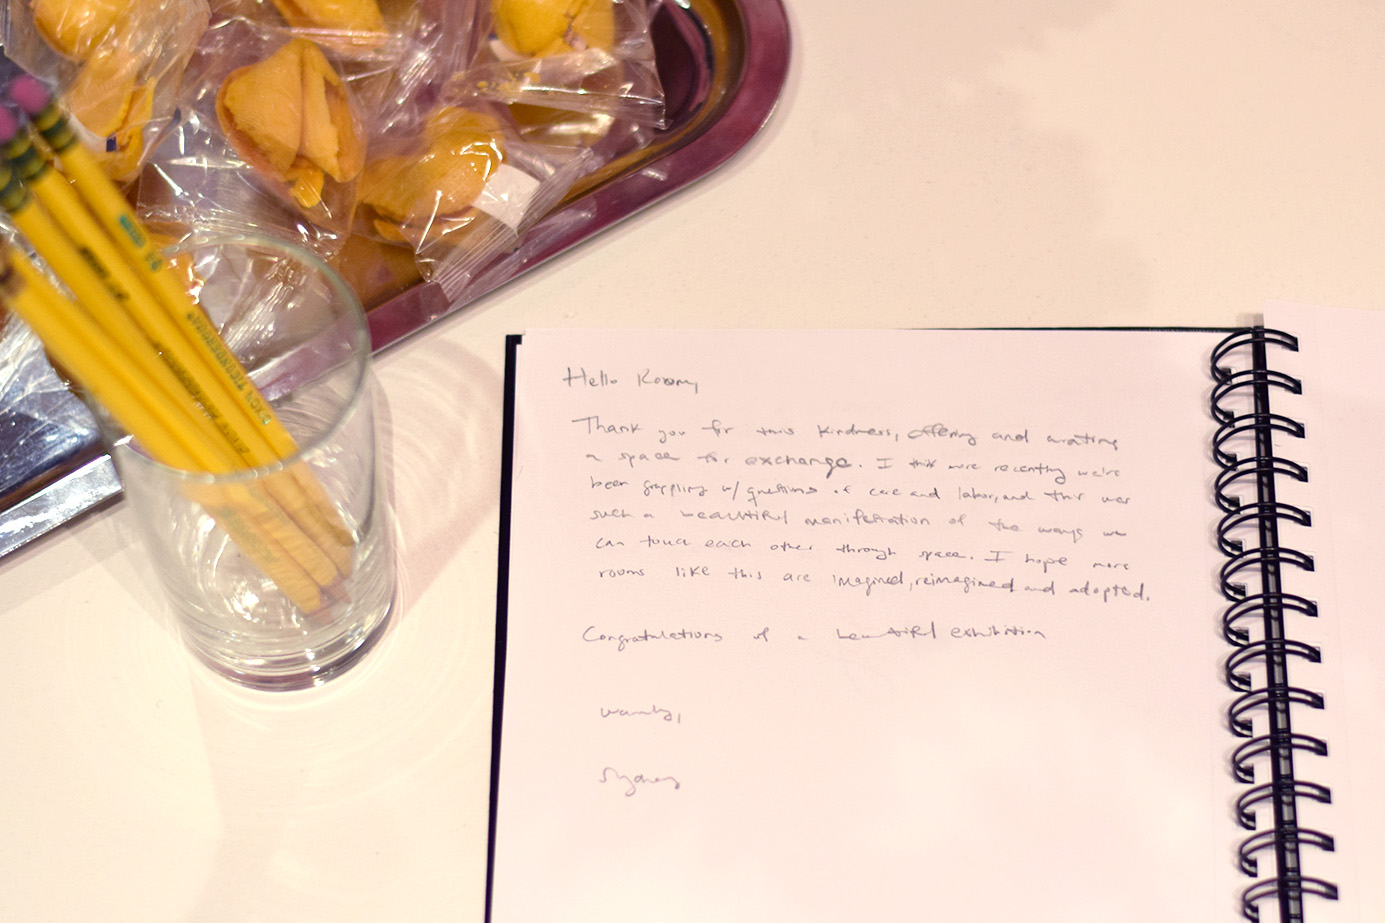 TICONDEROGA
DIXON TICONDEROGA
Hello Room,
Thank you for this kindness, offering and creating
a space for exchange. I think more recently we've
been grappling w/ questions of care and labor, and this was
such a beautiful manifestation of the ways we
can touch each other through space. I hope more
rooms like this are imagined, reimagined and adopted.
Congratulations of a beautiful exhibition
warmly,
Sydney